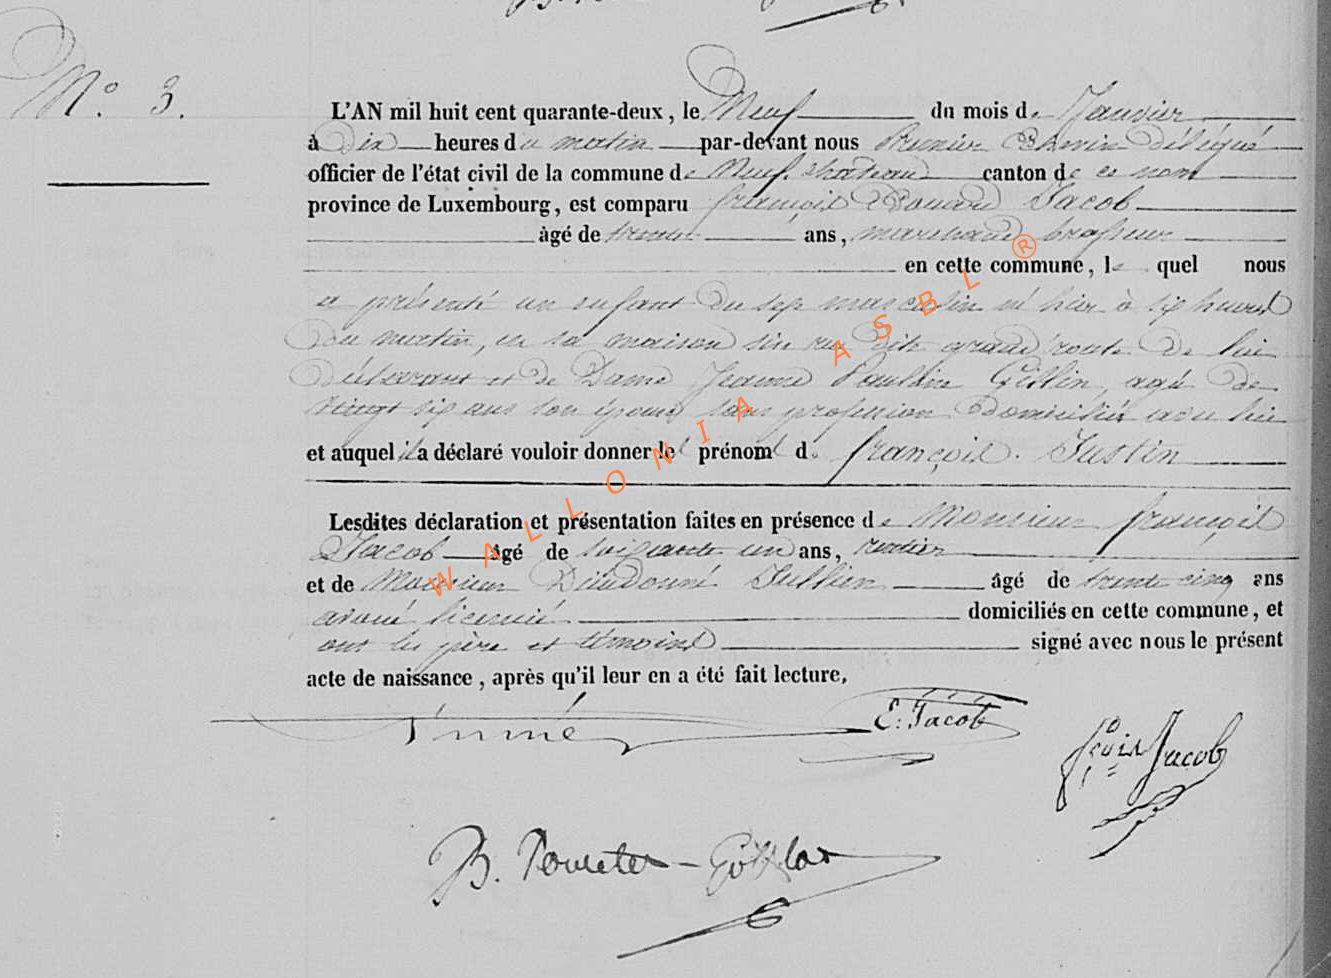 N.° 3.
L'AN mil huit cent quarante-deux, le Neuf du mois de Janvier
à Dix heures du matin par-devant nous Premier Echevin délégué
officier de l'état civil de la commune de Neufchateau canton de ce nom
province de Luxembourg, est comparu françois Edouard Jacob
âgé de trente ans, marchand brasseur
en cette commune, le quel nous
a présenté un enfant du sexe masculin né hier à six heures
du matin, en sa maison sise rue dite grand route de lui
déclarant et de Dame Jeanne Pauline Gillin, agée de
vingt six ans son épouse sans profession Domiciliée avec lui
et auquel il a déclaré vouloir donner les prénoms de françois Justin
Lesdites déclaration et présentation faites en présence de Monsieur françois
Jacob âgé de soixante un ans, rentier
et de Monsieur Dieudonné Jullien âgé de trente cinq ans
avoué licencié domiciliés en cette commune, et
ont les père et témoins signé avec nous le présent
acte de naissance, après qu'il leur en a été fait lecture,
E: Jacob
fçois Jacob
B. Pourcelet-
WALLONIA ASBL ®